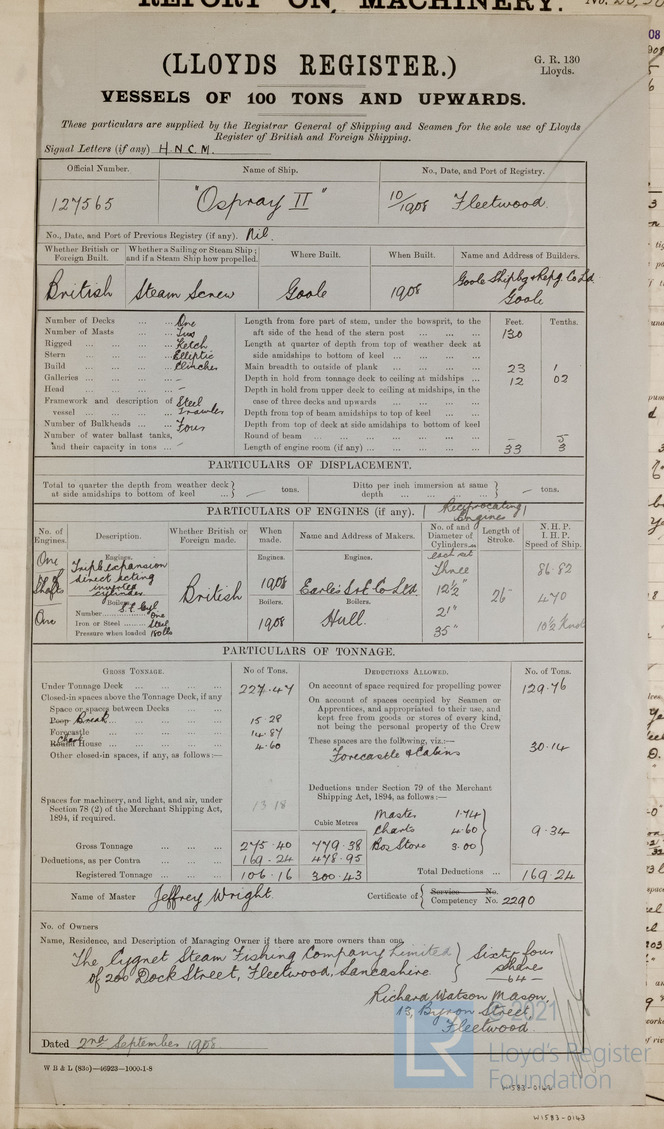 REPORT ON MACHINERY. No.
(LLOYDS REGISTER.)
G. R. 130
Lloyds.
VESSELS OF 100 TONS AND UPWARDS.
These particulars are supplied by the Registrar General of Shipping and Seamen for the sole use of Lloyds
Register of British and Foreign Shipping.
Signal Letters (if any) H.N.C.M.
Official Number. Name of Ship. No., Date, and Port of Registry.
127565 "Ospray II" 10/1908 Fleetwood.
No., Date, and Port of Previous Registry (if any). Nil.
Whether British or Foreign Built. Whether a Sailing or Steam Ship; and if a Steam Ship how propelled. Where Built. When Built. Name and Address of Builders.
British Steam Screw Goole 1908 Goole Shipbg & Repg Co Ld Goole
Number of Decks ... ... One
Number of Masts ... ... Two
Rigged ... ... Ketch
Stern ... ... Elliptic
Build ... ... Clincher
Galleries ... ... –
Head ... ... –
Framework and description of vessel ... ... Steel Trawler
Number of Bulkheads ... Four
Number of water ballast tanks, and their capacity in tons ... –
Feet. Tenths.
Length from fore part of stem, under the bowsprit, to the aft side of the head of the stern post ... ... 130
Length at quarter of depth from top of weather deck at side amidships to bottom of keel ... ...
Main breadth to outside of plank ... ... 23 1
Depth in hold from tonnage deck to ceiling at midships ... 12 02
Depth in hold from upper deck to ceiling at midships, in the case of three decks and upwards ... ...
Depth from top of beam amidships to top of keel ... ...
Depth from top of deck at side amidships to bottom of keel
Round of beam ... ... – 5
Length of engine room (if any) ... ... 33 3
PARTICULARS OF DISPLACEMENT.
Total to quarter the depth from weather deck at side amidships to bottom of keel ... – tons.
Ditto per inch immersion at same depth ... ... – tons.
PARTICULARS OF ENGINES (if any). Reciprocating Engines
No. of Engines. Description. Whether British or Foreign made. When made. Name and Address of Makers. No. of and Diameter of Cylinders in each set Length of Stroke. N. H. P. I. H. P. Speed of Ship.
One Engines. Triple expansion direct acting inverted cylinder. British Engines. 1908 Engines. Earle's S & E Co Ltd. Three 12½" 21" 35" 26" 86.82 470 10½ Knots
Shafts
One Boilers. S.E. Cyl
Number ... One
Iron or Steel ... Steel
Pressure when loaded 180 lbs
Boilers. 1908 Boilers. Hull.
PARTICULARS OF TONNAGE.
GROSS TONNAGE. No of Tons. DEDUCTIONS ALLOWED. No. of Tons.
Under Tonnage Deck ... ... 227.47
Closed-in spaces above the Tonnage Deck, if any
Space or spaces between Decks ... ...
Poop Break ... ... 15 28
Forecastle ... ... 14.87
Round House Chart ... ... 4.60
Other closed-in spaces, if any, as follows:—
Spaces for machinery, and light, and air, under Section 78 (2) of the Merchant Shipping Act, 1894, if required. 13 18
On account of space required for propelling power 129.76
On account of spaces occupied by Seamen or Apprentices, and appropriated to their use, and kept free from goods or stores of every kind, not being the personal property of the Crew
These spaces are the following, viz.:—
Forecastle & Cabins 30.14
Deductions under Section 79 of the Merchant Shipping Act, 1894, as follows:—
Cubic Metres
Master 1.74
Charts 4.60
Bos Store 3.00
9.34
Gross Tonnage ... ... 275.40 779.38
Deductions, as per Contra ... 169.24 478.95
Registered Tonnage ... 106.16 300.43
Total Deductions ... 169.24
Name of Master Jeffrey Wright. Certificate of Service No. Competency No. 2290
No. of Owners
Name, Residence, and Description of Managing Owner if there are more owners than one.
The Cygnet Steam Fishing Company Limited
of 200 Dock Street, Fleetwood, Lancashire.
Sixty four share
64
Richard Watson Mason,
13, Byron Street,
Fleetwood
Dated 2nd September 1908.
W B & L (830)—46923—1000-1-8
© 2021
LR
Lloyd's Register
Foundation
W1583-0143
W1583-0143